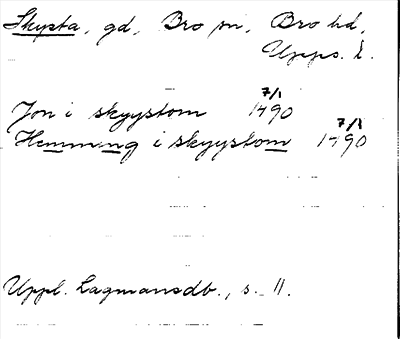 Skysta, gd, Bro sn, Bro hd,
Upps. l.
7/1
Jon i skyystom 1490
7/1
Hemming i skyystom 1490
Uppl. Lagmansdb., s. 11.